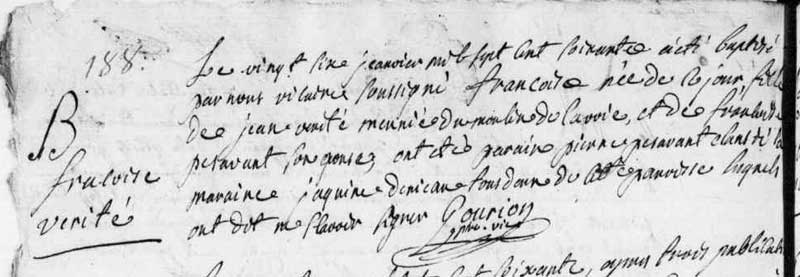 188.
B
fracoise
verité
Le vingt sixe janvier mil sept cent soixante a été baptisé
par nous vicaire soussigné francoise née de ce jour fille
de jean verité meunié du moulin de la voie, et de
pesavant son epouse, ont été paraine pierre pesavant
maraine jaquine tous deux de cette paroisse lesquels
ont dit ne scavoir signer Gourion
ptre. vic.
soixante, apres trois publicat